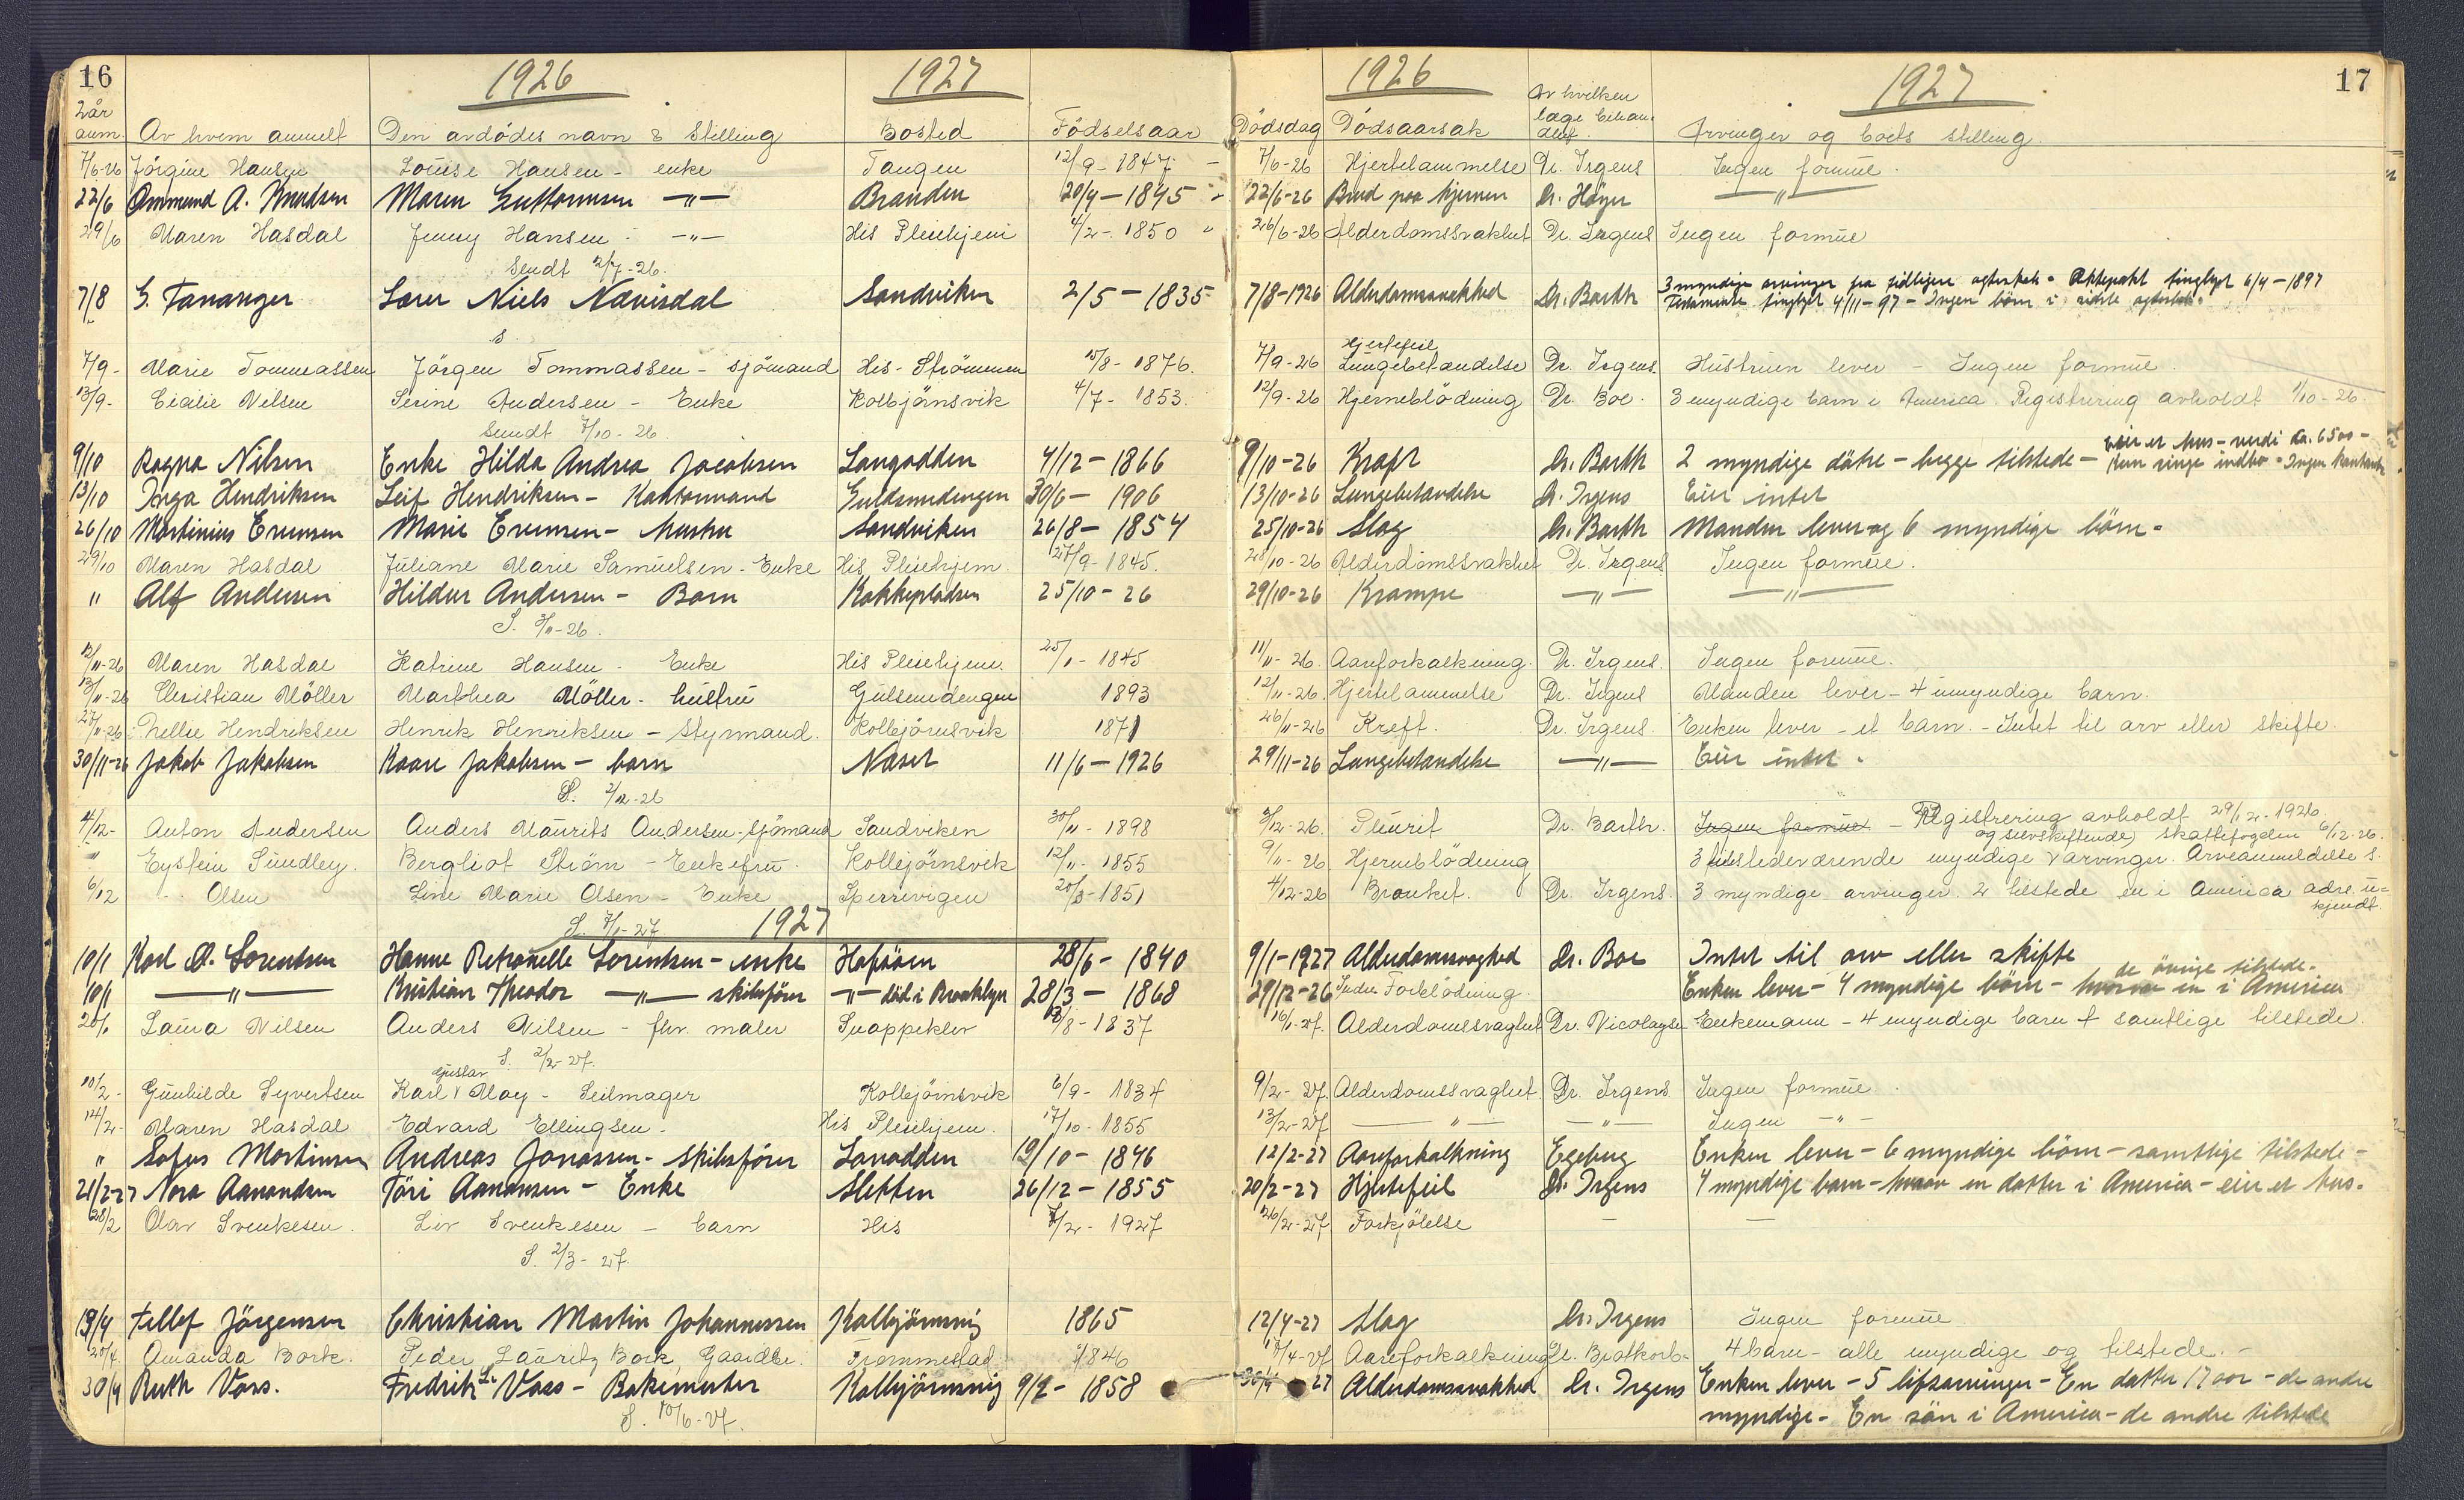 16 1926 1927 1926 1927 17
Av hvem anmelt Den avdödes navn & Stilling Bosted Födselsaar Dödsdag Dödsaarsak Av hvilken læge behandlet. Arvinger og boets stilling.
7/6-26 Jörgine Hansen Louise Hansen - enke Tangen 12/9-1847 7/6-26 Hjertelammelse Dr. Irgens Ingen formue.
22/6 Ommund A. Knudsen Maren Guttormsen —"— Branden 20/9-1845 22/6-26 Brud paa hjernen Dr. Höyer —"—
29/6 Maren Hasdal Jenny Hansen —"— His Pleiehjem 4/2-1850 26/6-26 Alderdomssvakhet Dr. Irgens Ingen formue
Sendt 2/7-26.
7/8 G. Tananger Lærer Niels Nævisdal Sandviken 2/5-1835 7/8-1926 Alderdomssvakhed Dr. Barth 3 myndige arvinger fra tidligere egteskab - Ektepakt tinglyst 6/4-1897
Testamente tinglyst 4/11-97 - Ingen börn i sidste egteskab.
S.
7/9- Marie Tommassen Jörgen Tommassen - sjömand His-Strömmen 15/8-1876. 7/9-26 Hjertefeil Lungebetændelse Dr. Irgens. Hustruen lever - Ingen formue.
13/9- Cecilie Nilsen Serine Andersen - Enke Kolbjörnsvik 4/7-1853. 12/9-26 Hjerneblödning Dr. Boe. 3 myndige barn i America. Registrering avholdt 1/10-26.
Sendt 7/10-26.
9/10 Ragna Nilsen Enke Hilda Andrea Jacobsen Langodden 4/12-1866 9/10-26 Kræft Dr. Barth 2 myndige dötre - begge tilstede - Eier et hus - verdi ca. 6500 -
Kun ringe indbo - Ingen kontanter
13/10 Inga Hendriksen Leif Hendriksen - Kontormand Guldsmedengen 30/6-1906 13/10-26 Lungebetændelse Dr. Irgens Eier intet
26/10 Martinius Evensen Marie Evensen - hustru Sandviken 26/8-1854 25/10-26 Slag Dr. Barth Manden lever og 6 myndige börn -
29/10 Maren Hasdal Juliane Marie Samuelsen - Enke His Pleiehjem. 27/9-1845. 28/10-26 Alderdomssvakhet Dr. Irgens Ingen formue.
" Alf Andersen Hildur Andersen - Barn Kokkepladsen 25/10-26 29/10-26 Krampe —"— —"—
S. 3/11-26.
12/11-26 Maren Hasdal Katrine Hansen - Enke His Pleiehjem. 25/1-1845 11/11-26. Aareforkalkning. Dr. Irgens. Ingen formue.
13/11-26 Christian Möller Marthea Möller - hustru Gulsmedengen 1893 12/11-26. Hjertelammelse Dr. Irgens Manden lever - 4 umyndige barn.
27/11-26 Nellie Hendriksen Henrik Henriksen - Styrmand. Kolbjörnsvik 1871 26/11-26 Kreft. Dr. Irgens. Enken lever - et barn. - Intet til arv eller skifte.
30/11-26 Jakob Jakobsen Kaare Jakobsen - barn Næset 11/6-1926 29/11-26 Lungebetændelse —"— Eier intet -
S. 2/12-26
4/12- Anton Andersen Anders Maurits Andersen - sjömand Sandviken 30/11-1898 3/12-26. Pleurit Dr. Barth. Ingen formue - Registrering avholdt 29/12-1926.
" Eystein Sundley. Bergliot Ström - Enkefru. Kolbjörnsvik 12/11-1855 9/11-26 Hjerneblödning 3 tilstedeværende myndige og selvskiftende arvinger. Arveanmeldelse S. skattefogden 6/12-26.
6/12 Olsen Line Marie Olsen - Enke Sperrevigen 20/3-1851 4/12-26 Bronket. Dr. Irgens. 3 myndige arvinger. 2 tilstede en i America adr. ukjendt.
S. 7/1-27 1927
10/1 Karl A. Sorentsen Hanne Petronelle Sorentsen - enke Hafsöen 28/6-1840 9/1-1927 Alderdomssvaghed Dr. Boe Intet til arv eller skifte
10/1 —"— Kristian Theodor —"— skibsförer —"— död i Brooklyn 28/3-1868 29/12-26 Indre Forblödning. Enken lever - 4 myndige börn - hvorav en i America de övrige tilstede.
20/1 Laura Nilsen Anders Nilsen - fhv. maler Snappeklev 13/8-1837 16/1-27. Alderdomssvaghet Dr. Nicolaysen Enkemann - 4 myndige barn samtlige tilstede.
S. 2/2-27.
10/2- Gunhilde Syvertsen Karl Gustav May - Seilmager Kolbjörnsvik 6/9-1834 9/2-27. Alderdomssvaghet Dr. Irgens. Ingen formue.
14/2- Maren Hasdal Edvard Ellingsen - His Pleiehjem. 17/10-1855 13/2-27 —"— —"— Ingen —"—
" Sofus Martinsen Andreas Jonassen - Skibsförer Lanodden 19/10-1846 12/2-27 Aareforkalkning Egeberg Enken lever - 6 myndige börn - samtlige tilstede -
21/2-27 Nora Aanonsen Töri Aanonsen - Enke Sletten 26/12-1855 20/2-27 Hjertefeil Dr. Irgens 4 myndige barn - hvorav en datter i America - eier et hus.
28/2 Olav Svenkesen. Liv Svenkesen - barn His 7/2-1927 26/2-27 Forkjölelse — —
S. 2/3-27.
19/4 Tellef Jörgensen Christian Martin Johannessen Kolbjörnsvig 1865 12/4-27 Slag Dr. Irgens Ingen formue
20/4. Amanda Bork. Peder Lauritz Bork, Gaardbr. Frommestad 1846 17/4-27 Aareforkalkning Dr. Brotkorb- 4 barn - alle myndige og tilstede. -
30/4 Ruth Voss. Fredrik L. Voss - Bakemester Kolbjörnsvig 9/2-1858 30/4 27 Alderdomssvakhed Dr. Irgens Enken lever - 5 lifsarvinger - En datter 17 aar - de andre
S. 10/6-27. myndige - En sön i America - de andre tilstede